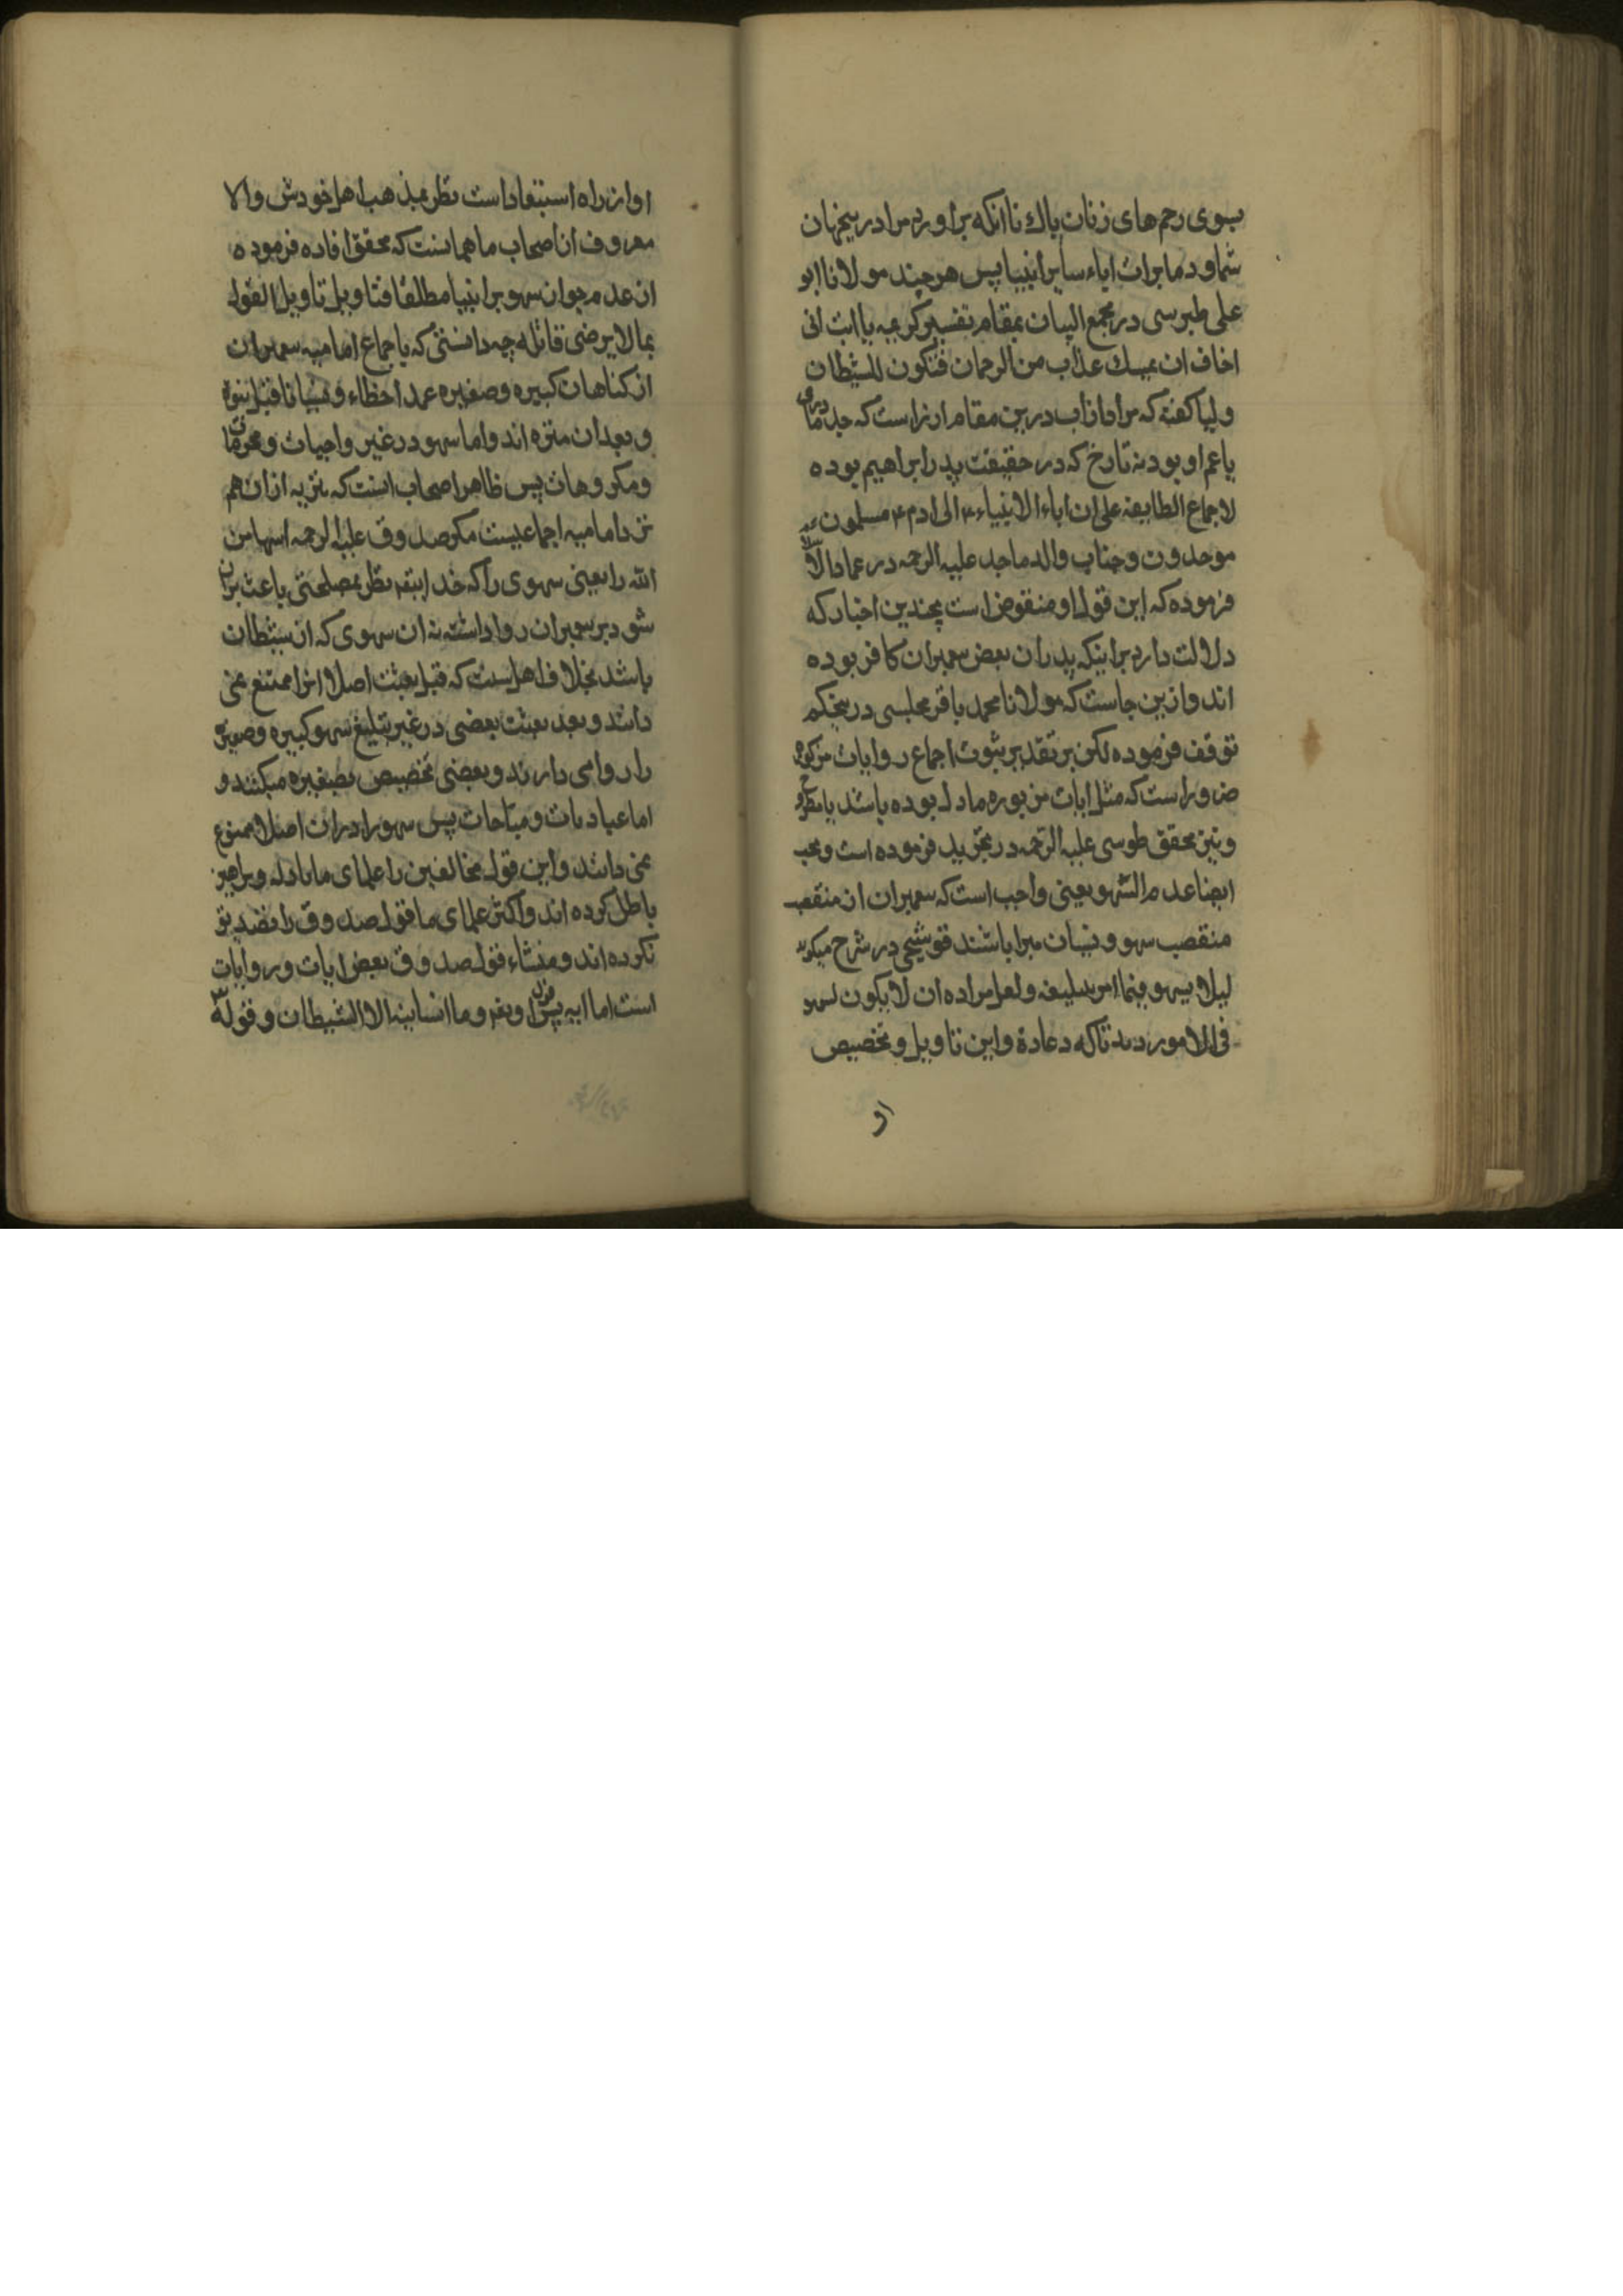 بسوی رحم های زنان پاک تا انکه براورد مرا در پنجهان
شما و در مابرات اباء سایر انبیا پس هر چند مولانا ابو
علی طبرسی در مجمع البیان بمقام تفسیر کریمه یا ابت انی
اخاف ان یمسک عذاب من الرحمان فتکون للشیطان
ولیا کفته که مراد از اب درین مقام ازر است که جد مادری
یا عم او بود نه تارخ که در حقیقت پدر ابراهیم بوده
لاجماع الطایفه علی ان اباء الانبیاء ۴ الی ادم ۴ مسلمون
موحدون و جناب والد ماجد علیه الرحمه در عماد الاسلام
فرموده که این قول او منقوض است بچندین اخبار که
دلالت دارد براینکه پدران بعض پیمبران کافر بوده
اند و ازین جاست که مولانا محمد باقر مجلسی درینحکم
توقف فرموده لکن بر تقدیر ثبوت اجماع روایات مذکوره
ضرور است که مثل ایات مزبوره مادل بوده باشد یا مطروح
و نیز محقق طوسی علیه الرحمه در تجرید فرموده است و یجب
ایضا عدم السهو یعنی واجب است که پیمبران از منقصت
منقصب سهو و نسیان مبرا باشند قوشچی در شرح میکوید
لیلا یسهو فیما امر بتبلیغه و لعل مراده ان لا یکون لسهو
فی الامور دیدنا له و عادة و این تاویل و تخصیص
او
او از راه استبعاد است نظر بمذهب اهل خودش والا
معروف از اصحاب ما همانست که محقق افاده فرموده
از عدم جواز سهو بر انبیا مطلقا فتاویل تاویل القول
بما لا یرضی قائله چه دانستی که باجماع امامیه پیمبران
از کناهان کبیره و صغیره عمدا خطاء و نسیانا قبل نبوة
و بعد ان منزه اند و اما سهو در غیر واجبات و محرمات
و مکروهات پس ظاهر اصحاب انست که تنزیه ازان هم
نزد امامیه اجماعیست مکر صدوق علیه الرحمه اسهامن
الله را یعنی سهوی را که خدا بتعه نظر بمصلحتی باعث بران
شود بر پیمبران روا داشته نه ان سهوی که از شیطان
باشد بخلاف اهلسنت که قبل بعثت اصلا انرا ممتنع نمی
دانند و بعد بعثت بعضی در غیر تبلیغ سهو کبیره و صغیره
را روا می دارند و بعضی تخصیص بصغیره میکنند و
اما عبادات و مباحات پس سهو را دران اصلا ممنوع
نمی دانند و این قول مخالفین را علمای ما بادله و براهین
باطل کرده اند و اکثر علمای ما قول صدوق را تصدیق
نکرده اند و منشاء قول صدوق بعض ایات و روایات
است اما ایه پس قول او تعه و ما انسانیه الا الشیطان و قوله